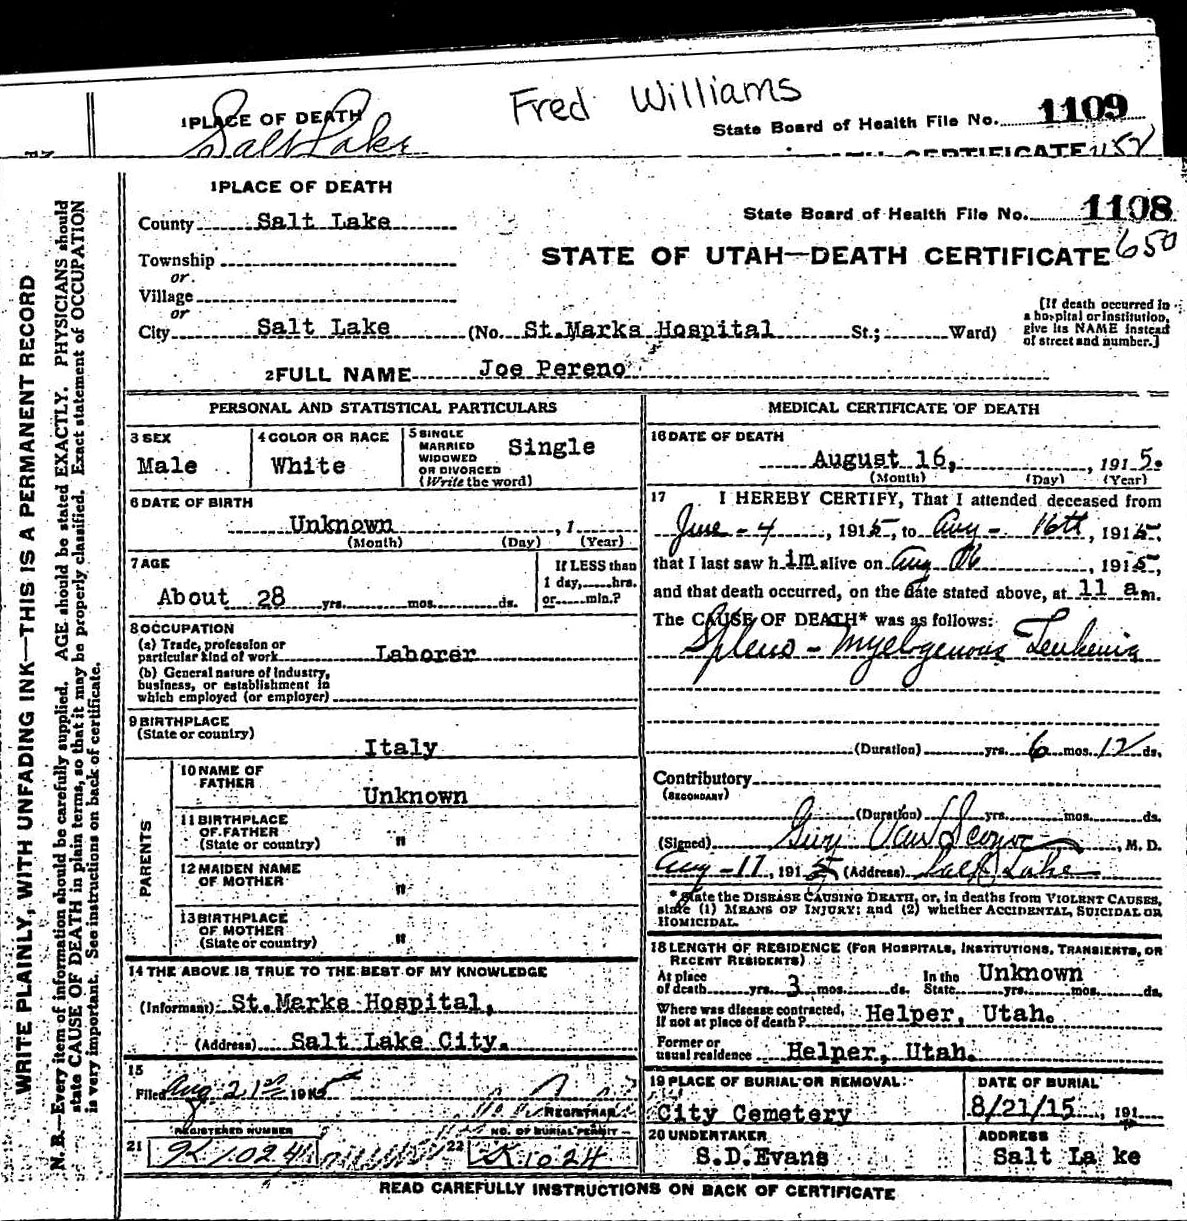 Fred Williams
1 PLACE OF DEATH
Salt Lake
State Board of Health File No. 1109
CERTIFICATE 1152
1 PLACE OF DEATH
County Salt Lake
State Board of Health File No. 1108
650
STATE OF UTAH—DEATH CERTIFICATE
Township
or
Village
or
City Salt Lake (No. St.Marks Hospital St.; Ward)
[If death occurred in a hospital or institution, give its NAME instead of street and number.]
2 FULL NAME Joe Pereno
PERSONAL AND STATISTICAL PARTICULARS
3 SEX
Male
4 COLOR OR RACE
White
5 SINGLE
MARRIED
WIDOWED
OR DIVORCED
(Write the word)
Single
6 DATE OF BIRTH
Unknown , 1
(Month) (Day) (Year)
7 AGE
About 28 yrs. mos. ds.
If LESS than
1 day, hrs.
or min.?
8 OCCUPATION
(a) Trade, profession or
particular kind of work Laborer
(b) General nature of industry,
business, or establishment in
which employed (or employer)
9 BIRTHPLACE
(State or country)
Italy
PARENTS
10 NAME OF
FATHER
Unknown
11 BIRTHPLACE
OF FATHER
(State or country) "
12 MAIDEN NAME
OF MOTHER "
13 BIRTHPLACE
OF MOTHER
(State or country) "
14 THE ABOVE IS TRUE TO THE BEST OF MY KNOWLEDGE
(Informant) St.Marks Hospital,
(Address) Salt Lake City.
15
Filed Aug 21st 1915
REGISTRAR
REGISTERED NUMBER
21 K1024
NO. OF BURIAL PERMIT
22 K1024
MEDICAL CERTIFICATE OF DEATH
16 DATE OF DEATH
August 16, , 1915.
(Month) (Day) (Year)
17 I HEREBY CERTIFY, That I attended deceased from
June - 4 , 1915, to Aug - 16th , 1915,
that I last saw h im alive on Aug 16 , 1915,
and that death occurred, on the date stated above, at 11 a m.
The CAUSE OF DEATH* was as follows:
Spleno - Myelogenous Leukemia
(Duration) yrs. 6 mos. 12 ds.
Contributory
(SECONDARY)
(Duration) yrs. mos. ds.
(Signed) Guy Van Scoyoc , M. D.
Aug - 17, 1915 (Address) Salt Lake
* State the DISEASE CAUSING DEATH, or, in deaths from VIOLENT CAUSES,
state (1) MEANS OF INJURY; and (2) whether ACCIDENTAL, SUICIDAL OR
HOMICIDAL.
18 LENGTH OF RESIDENCE (FOR HOSPITALS, INSTITUTIONS, TRANSIENTS, OR
RECENT RESIDENTS)
At place
of death yrs. 3 mos. ds.
In the
State Unknown yrs. mos. ds.
Where was disease contracted,
if not at place of death? Helper, Utah.
Former or
usual residence Helper, Utah.
19 PLACE OF BURIAL OR REMOVAL
City Cemetery
DATE OF BURIAL
8/21/15 , 191
20 UNDERTAKER
S.D.Evans
ADDRESS
Salt La ke
READ CAREFULLY INSTRUCTIONS ON BACK OF CERTIFICATE
WRITE PLAINLY, WITH UNFADING INK—THIS IS A PERMANENT RECORD
N. B.—Every item of information should be carefully supplied. AGE should be stated EXACTLY. PHYSICIANS should
state CAUSE OF DEATH in plain terms, so that it may be properly classified. Exact statement of OCCUPATION
is very important. See instructions on back of certificate.